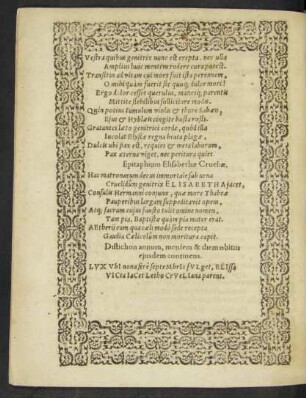 Vestra quibus genitrix nunc est erepta. nec ulla
Amplius huic mentem rodere cura potest.
Transitus ad vitam cui mors fuit ista perennem,
O mihi quàm fuerit sic quoq; dulce mori!
Ergò dolor cesset querulus, materq; parentis
Mittite flebilibus sollicitare modis.
Quin potius tumulum violis & thure Sabæo,
Ejus & Hyblæis cingite busta rosis.
Gratantes læto genitrici corde, quòd illa
Incolat Elysiæ regna beata plagæ,
Dulcis ubi pax est, requies & meta laborum,
Pax æterna viget, nec peritura quies.
Epitaphium Elisabethæ Crusiæ.
Hac matronarum decus immortale sub urna
Crusiidûm genitrix ELISABETHA jacet,
Consulis Hermanni conjunx, quæ more Thabeæ
Pauperibus largam suppeditavit opem,
Atq; sacrum cujus functa tulit omine nomen,
Tam pia, Baptistæ quàm pia mater erat.
Ætherei eam quæ cæli modò sede recepta
Gaudia Cælicolûm non moritura capit.
Distichon annum, mensem & diem obitus
ejusdem continens.
LVX Vbi nona ferè septeMbris fVLget, ELIsa
VICta IaCet Letho CrVseLiana parens.